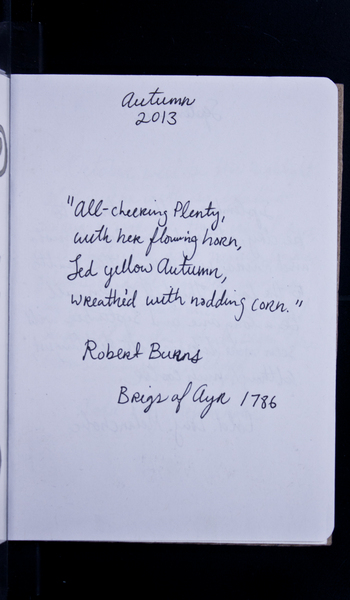 Autumn
2013
"All-cheering Plenty,
with her flowing horn,
Led yellow Autumn,
wreath'd with nodding corn."
Robert Burns
Brigs of Ayr 1786